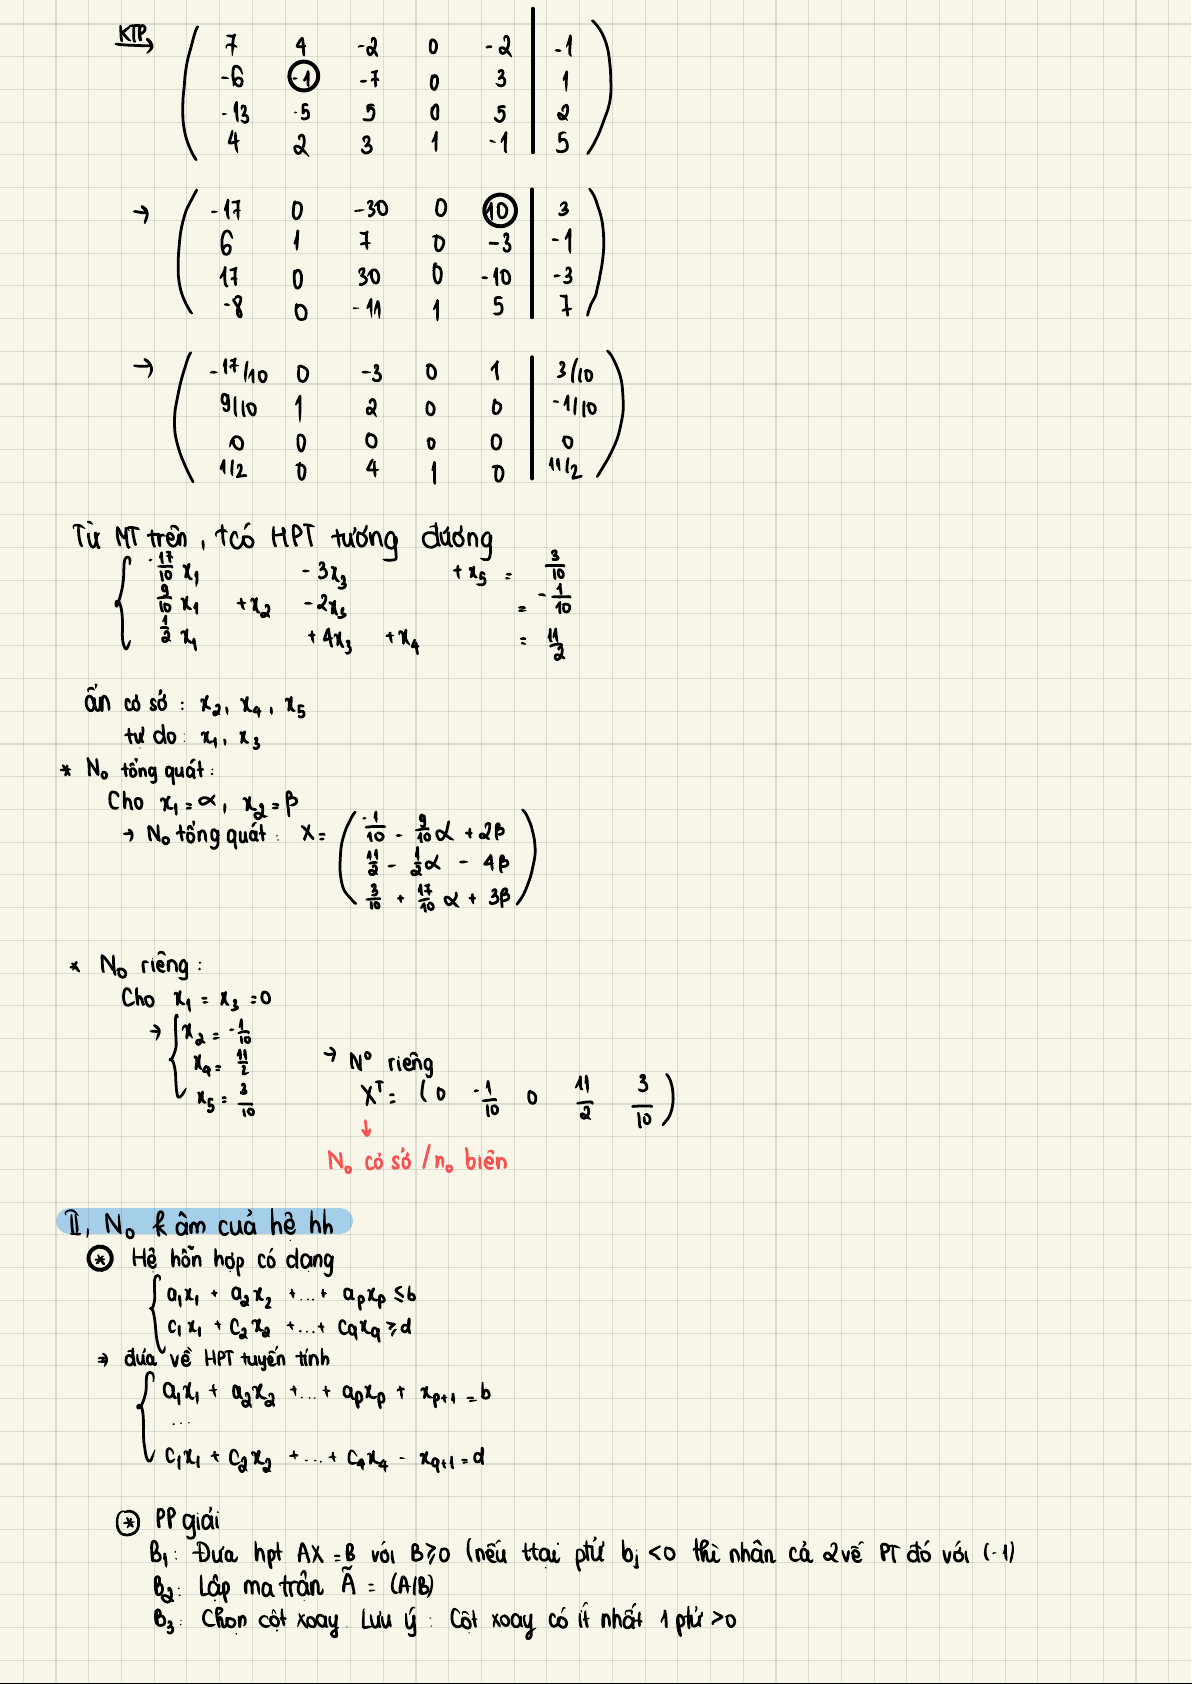 KTP →
7 4 -2 0 -2 | -1
-6 -1 -7 0 3 | 1
-13 -5 5 0 5 | 2
4 2 3 1 -1 | 5
→ -17 0 -30 0 10 | 3
6 1 7 0 -3 | -1
17 0 30 0 -10 | -3
-8 0 -11 1 5 | 7
→ -17/10 0 -3 0 1 | 3/10
9/10 1 2 0 0 | -1/10
0 0 0 0 0 | 0
11/2 0 4 1 0 | 11/2
Từ MT trên, tcó HPT tương đương
-17/10 x₁ - 3x₃ + x₅ = 3/10
9/10 x₁ + x₂ - 2x₃ = -1/10
1/2 x₁ + 4x₃ + x₄ = 11/2
ẩn cơ sở : x₂, x₄, x₅
tự do : x₁, x₃
* N₀ tổng quát :
Cho x₁ = α, x₂ = β
→ N₀ tổng quát : X = ( -1/10 - 9/10 α + 2β
11/2 - 1/2 α - 4β
3/10 + 17/10 α + 3β )
* N₀ riêng :
Cho x₁ = x₃ = 0
→ { x₂ = -1/10
x₄ = 11/2
x₅ = 3/10
→ N⁰ riêng
Xᵀ = ( 0 -1/10 0 11/2 3/10 )
↓
N₀ cơ sở / n₀ biên
II, N₀ k âm của hệ hh
* Hệ hỗn hợp có dạng
a₁x₁ + a₂x₂ + ... + aₚxₚ ≤ b
c₁x₁ + c₂x₂ + ... + cqxq ≥ d
⇒ đưa về HPT tuyến tính
a₁x₁ + a₂x₂ + ... + aₚxₚ + xₚ₊₁ = b
...
c₁x₁ + c₂x₂ + ... + cqxq - xq₊₁ = d
* PP giải
B₁ : Đưa hpt AX = B với B ≥ 0 (nếu ttại ptử bⱼ < 0 thì nhân cả 2 vế PT đó với (-1)
B₂ : Lập ma trận Ã = (A|B)
B₃ : Chọn cột xoay. Lưu ý : Cột xoay có ít nhất 1 ptử > 0